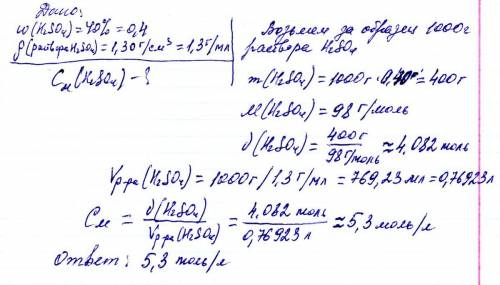 Дано:
ω(H₂SO₄) = 40% = 0,4
ρ(раствора H₂SO₄) = 1,30 г/см³ = 1,3 г/мл
Cм(H₂SO₄) - ?
Возьмем за образец 1000г
раствора H₂SO₄
m(H₂SO₄) = 1000г · 0,40 = 400г
M(H₂SO₄) = 98 г/моль
ν(H₂SO₄) = 400г / 98 г/моль ≈ 4,082 моль
Vр-ра(H₂SO₄) = 1000г / 1,3 г/мл = 769,23 мл = 0,76923 л
Cм = ν(H₂SO₄) / Vр-ра(H₂SO₄) = 4,082 моль / 0,76923 л ≈ 5,3 моль/л
Ответ: 5,3 моль/л